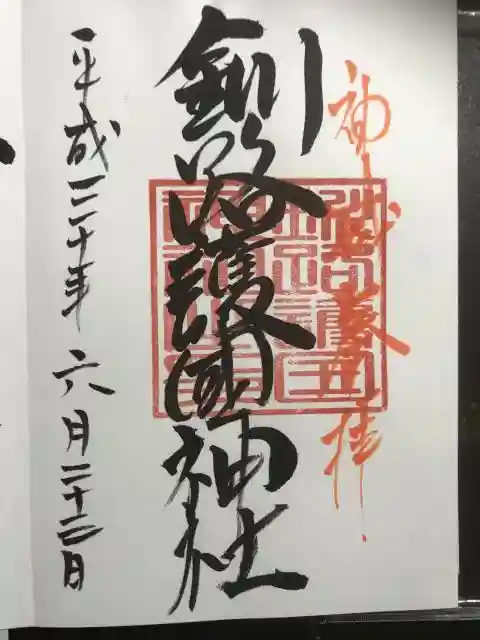 奉拝
釧路護國神社
平成三十年六月二十三日